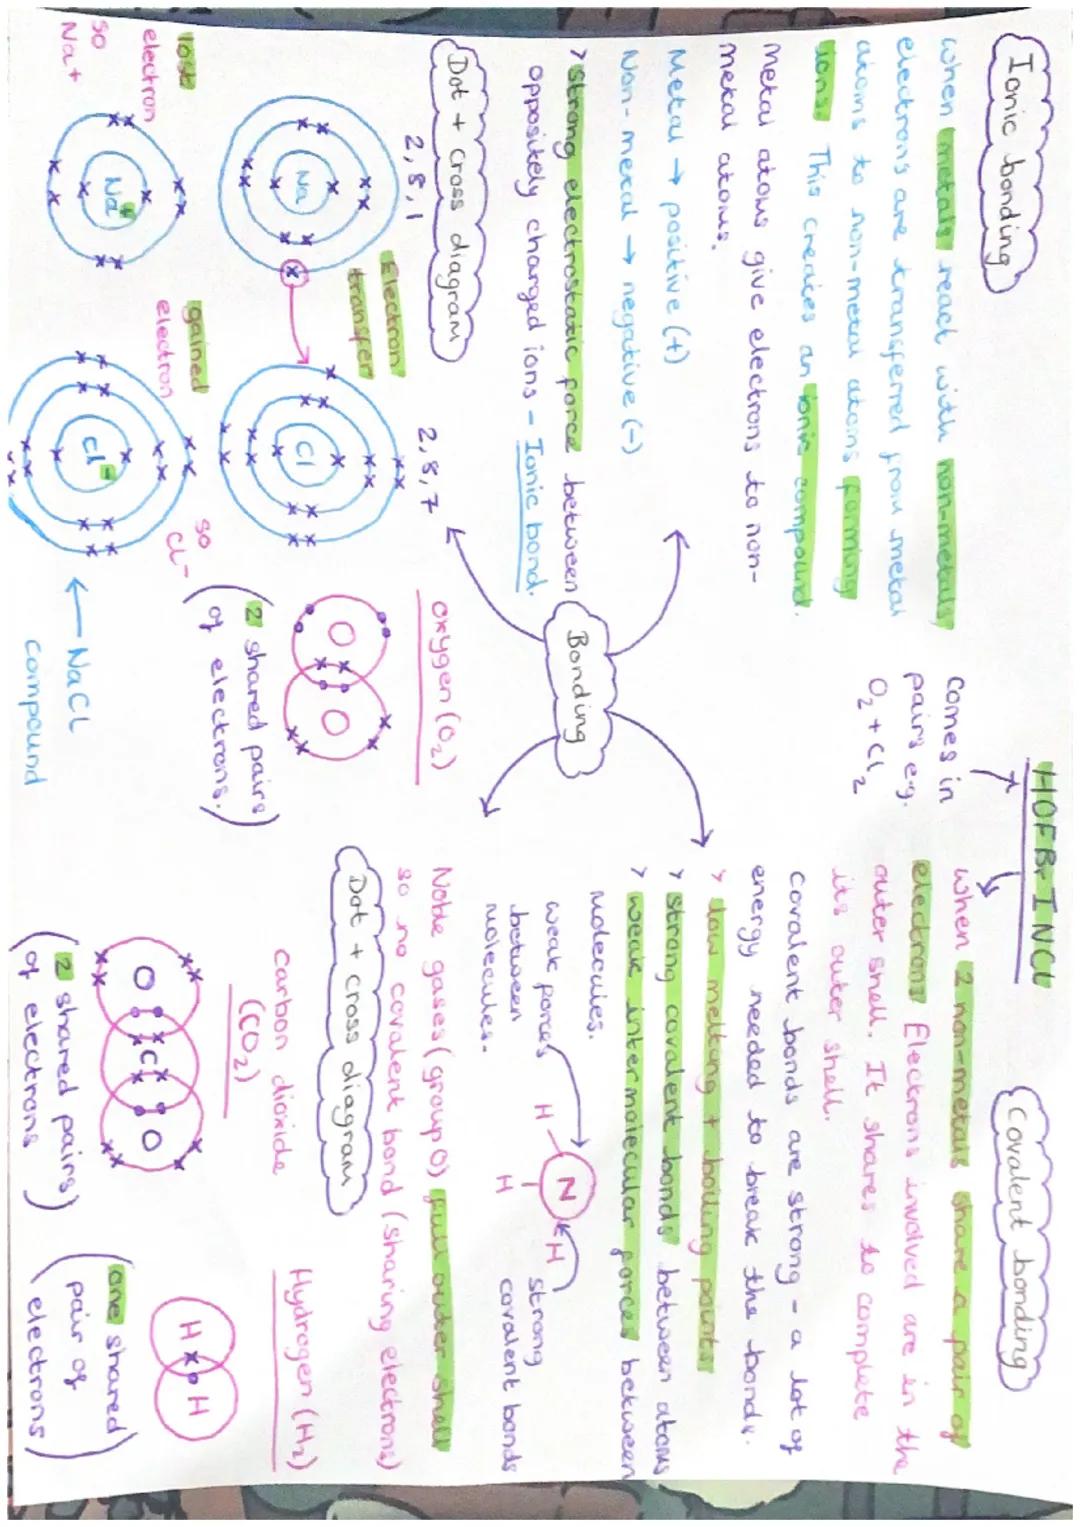 HOFBrINCl
Ionic bonding
when metals react with non-metals
electrons are transferred from metal
atoms to non-metal atoms forming
ions. This creates an ionic compound.
metal atoms give electrons to non-
metal atoms.
Metal → positive (+)
Non-metal → negative (-)
> strong electrostatic force between
oppositely charged ions - Ionic bond.
Dot + cross diagram
2,8,1
2,8,7
Electron
transfer
Na
Cl
lost
electron
so
Na+
Na+
gained
electron
so
Cl-
Cl-
← NaCl
compound
comes in
pairs e.g.
O2 + Cl2
Bonding
Covalent bonding
when 2 non-metals share a pair of
electrons. Electrons involved are in the
outer shell. It shares to complete
its outer shell.
covalent bonds are strong - a lot of
energy needed to break the bonds.
> low melting + boiling points
> strong covalent bonds between atoms
> weak intermolecular forces between
molecules.
weak forces
between
molecules.
H
N
H
H
strong
covalent bonds
Noble gases (group 0) full outer shell
so no covalent bond (sharing electrons)
Dot + cross diagram
oxygen (O2)
O O
(2 shared pairs
of electrons.)
Carbon dioxide
(CO2)
O C O
(2 shared pairs
of electrons)
Hydrogen (H2)
H H
(one shared
pair of
electrons)